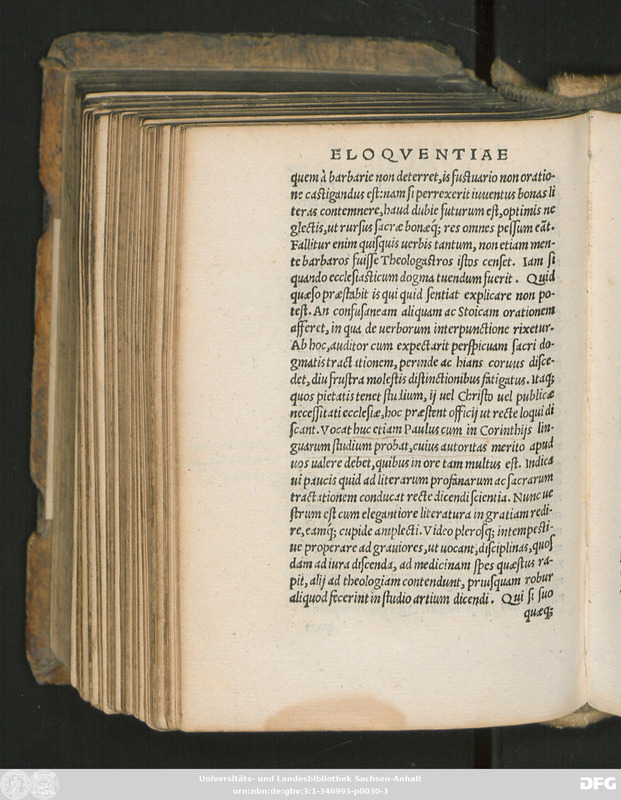 ELOQVENTIAE
quem à barbarie non deterret, is fustuario non oratio-
ne castigandus est: nam si perrexerit iuuentus bonas li
teras contemnere, haud dubie futurum est, optimis ne
glectis, ut rursus sacræ bonæq; res omnes pessum eāt.
Fallitur enim quisquis uerbis tantum, non etiam men-
te barbaros fuisse Theologastros istos censet. Iam si
quando ecclesiasticum dogma tuendum fuerit. Quid
quæso præstabit is qui quid sentiat explicare non po-
test. An confusaneam aliquam ac Stoicam orationem
afferet, in qua de uerborum interpunctione rixetur.
Ab hoc, auditor cum expectarit perspicuam sacri do-
gmatis tractationem, perinde ac hians coruus disce-
det, diu frustra molestis distinctionibus fatigatus. Itaq;
quos pietatis tenet studium, ij uel Christo uel publicæ
necessitati ecclesiæ, hoc præstent officij ut recte loqui di
scant. Vocat huc etiam Paulus cum in Corinthijs lin-
guarum studium probat, cuius autoritas merito apud
uos ualere debet, quibus in ore tam multus est. Indica
ui paucis quid ad literarum profanarum ac sacrarum
tractationem conducat recte dicendi scientia. Nunc ue
strum est cum elegantiore literatura in gratiam redi-
re, eamq; cupide amplecti. Video plerosq; intempesti-
ue properare ad grauiores, ut uocant, disciplinas, quos
dam ad iura discenda, ad medicinam spes quæstus ra-
pit, alij ad theologiam contendunt, priusquam robur
aliquod fecerint in studio artium dicendi. Qui si suo
quæq;
Universitäts- und Landesbibliothek Sachsen-Anhalt
urn:nbn:de:gbv:3:1-346993-p0030-3
DFG